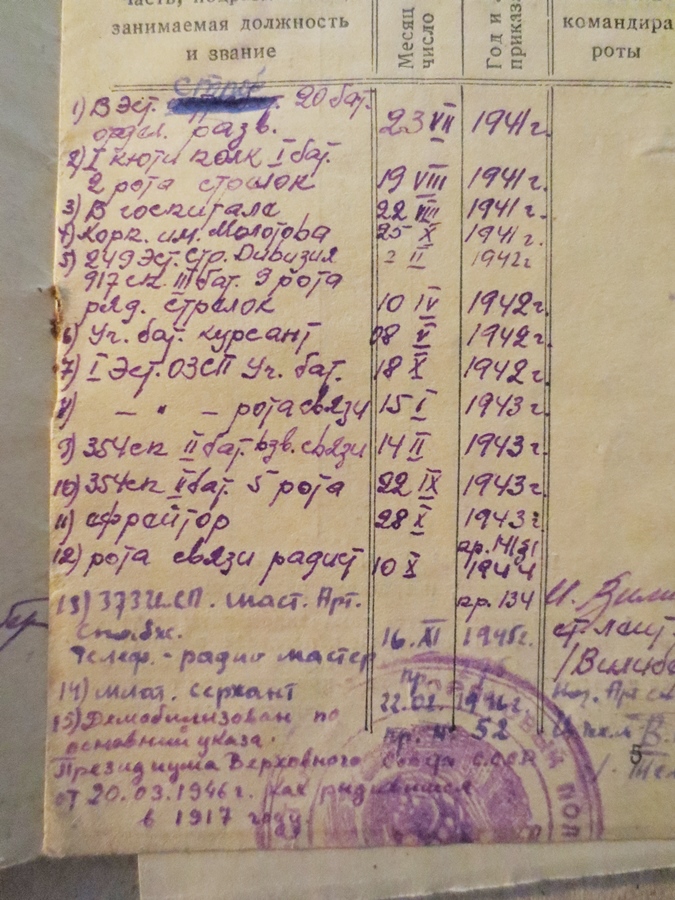 занимаемая должность
и звание
Месяц
число
Год и
приказа
командира
роты
1) В Эст. 20 бат. 23 VII 1941 г.
разв.
2) I полк I бат.
2 рота стрелок 19 VIII 1941 г.
3) В госпитале 22 VIII 1941 г.
4) Корк. им. Молотова 25 X 1941 г.
5) 249 Эст. Стр. Дивизия 2 II 1942 г
917 сп. III бат. 9 рота
ряд. стрелок 10 IV 1942 г.
6) Уч. бат. курсант 08 V 1942 г.
7) I Эст. ОЗСП Уч. бат. 18 X 1942 г.
8) — " — рота связи 15 I 1943 г.
9) 354 сп II бат. взв. связи 14 II 1943 г.
10) 354 сп II бат. 5 рота 22 IX 1943 г.
11) ефрейтор 28 X 1943 г.
12) рота связи радист 10 X 1944
пр. 134
13) Маст. Арт.
Снабж. 16. XI 1945 г.
Телеф. - радио мастер
14) млад. сержант 22.02. 1946 г.
15) Демобилизован по пр. № 52
Президиума Верховного Совета СССР
от 20.03.1946 г. как родившийся
в 1917 году.
5